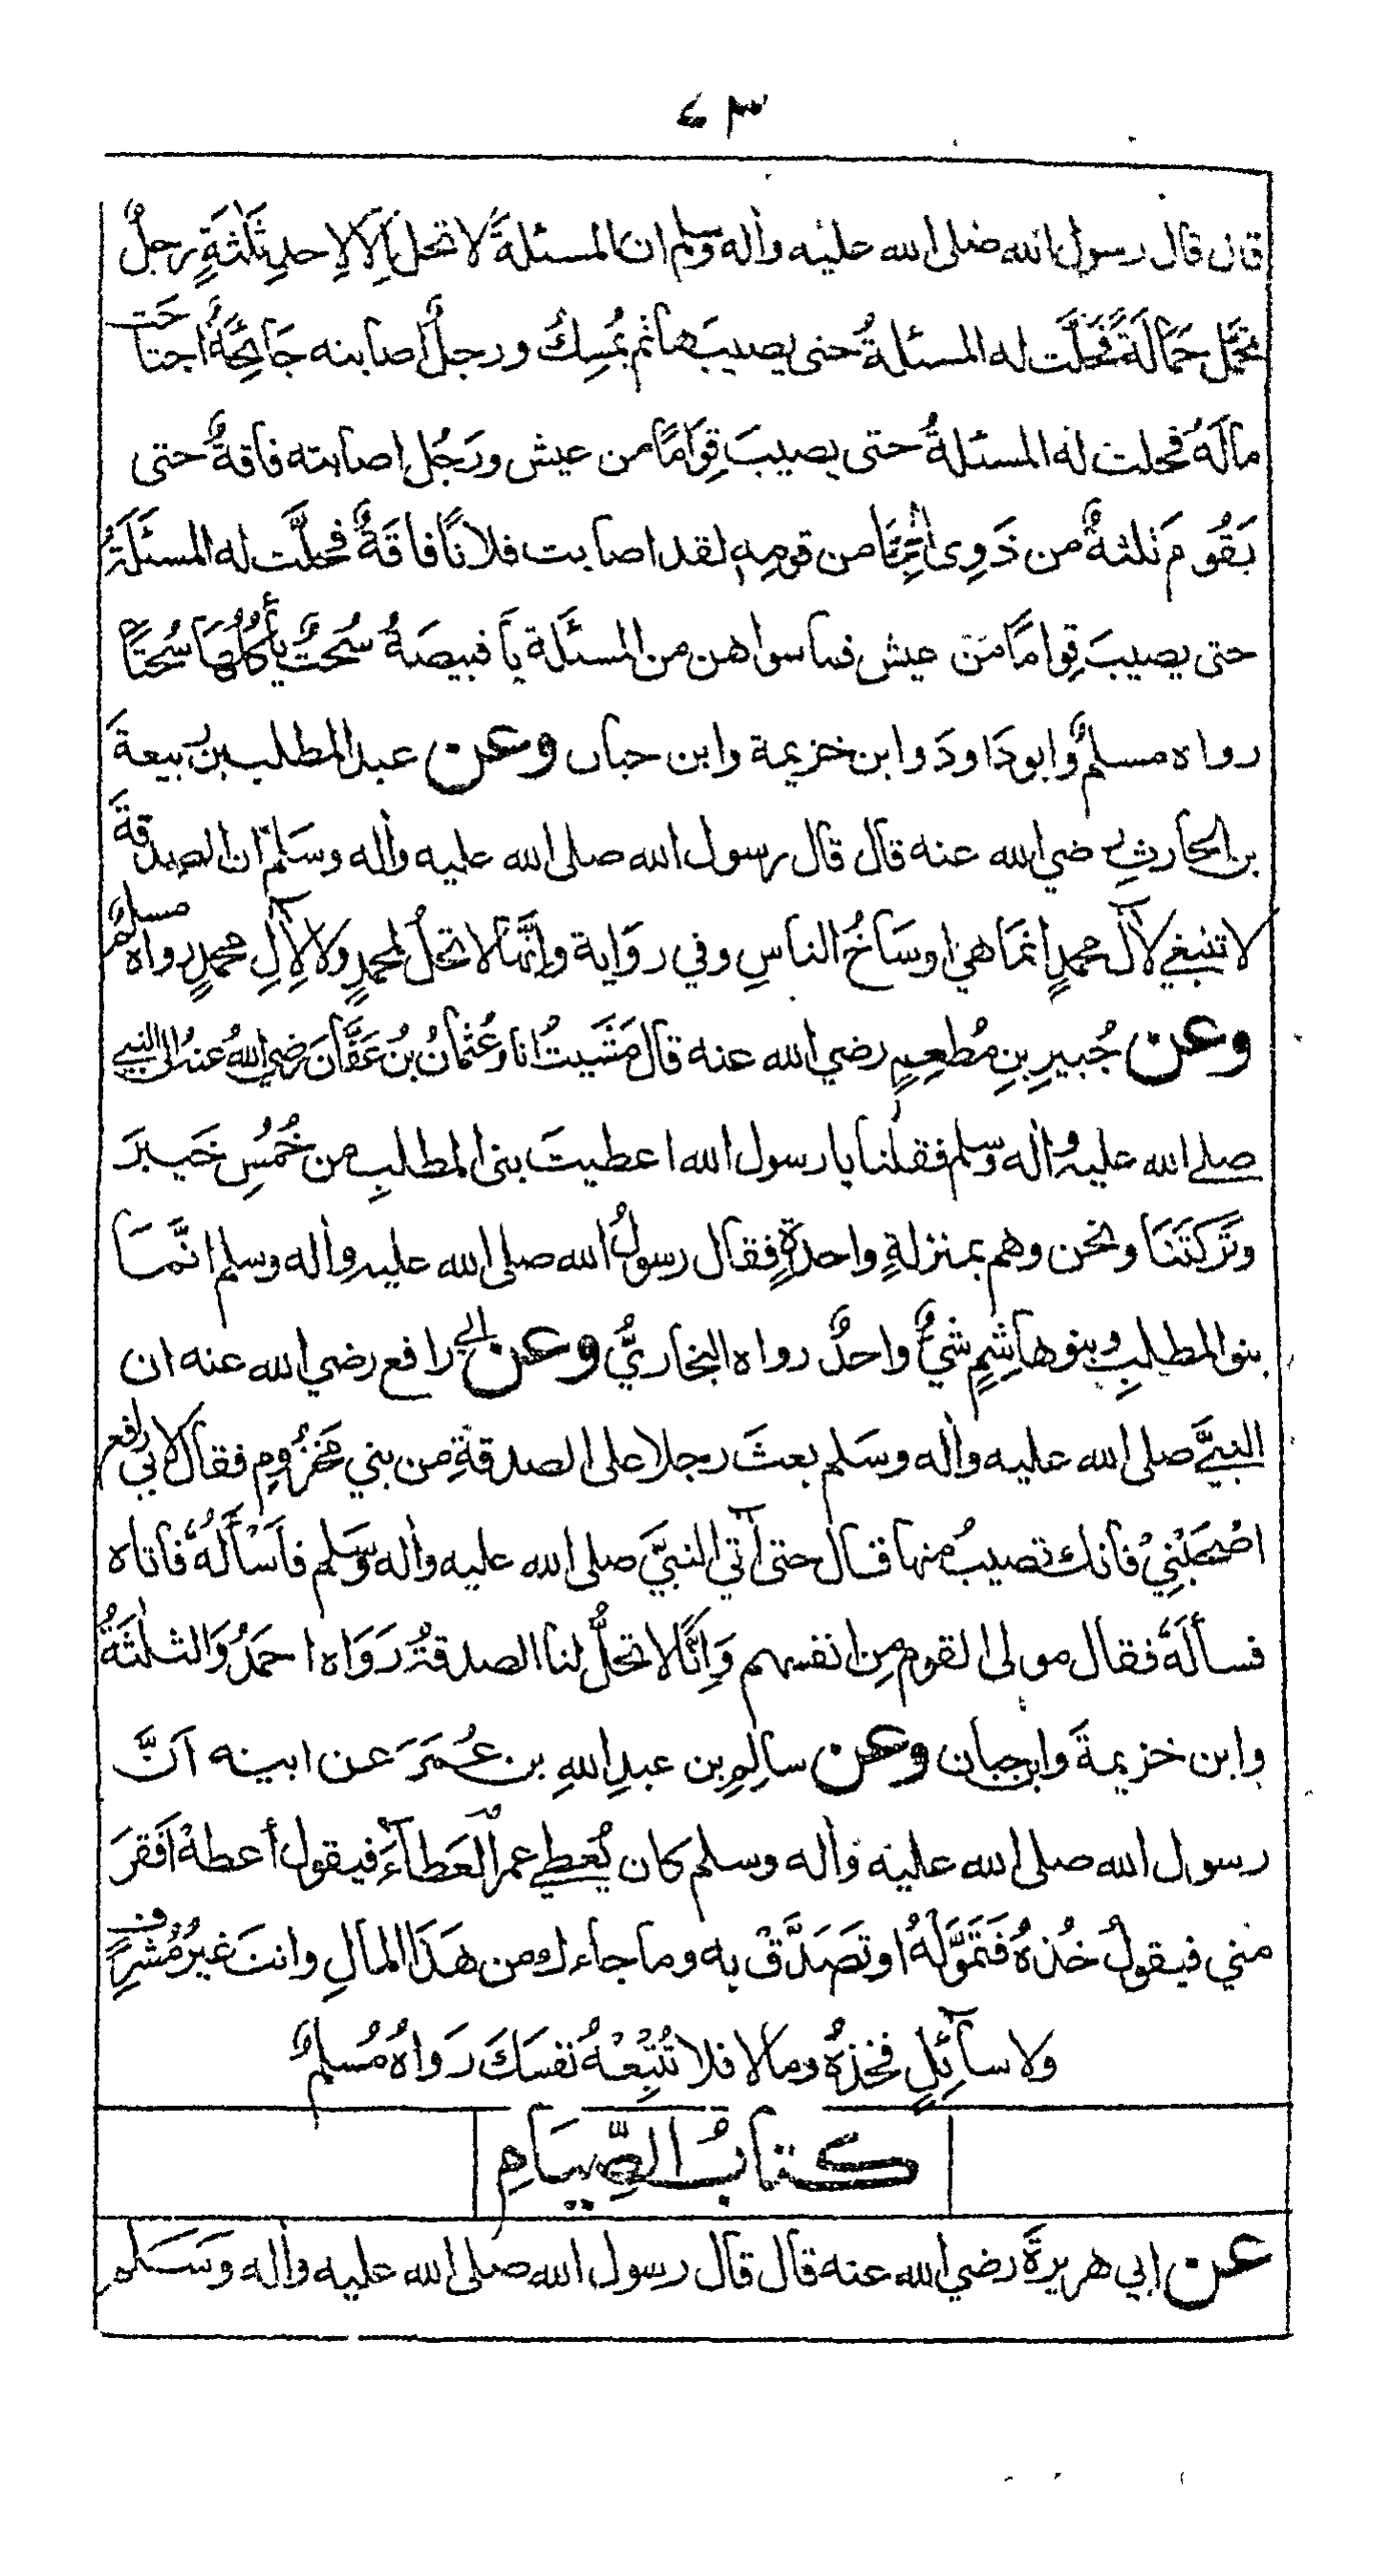 ٧٣
قال قال رسول الله صلى الله عليه واٰله وسلم ان المسئلةَ لا تحل اِلَّا لِاِحدِ ثَلٰثةٍ رجلٌ
تَحَمَّل حَمَالَةً فَحَلَّت له المسئلةُ حتى يصيبَها ثم يُمسِكُ ورجلٌ اصابته جَائِحَةٌ اجتاحَت
مالَهُ فحلت له المسئلةُ حتى يصيبَ قِوَامًا من عيش ورَجُل اصابته فاقةٌ حتى
يَقُوم ثلثةٌ من ذَوِى الحِجَا من قومِهٖ لقد اصابت فلانًا فاقَةٌ فحلَّت له المسئَلَةُ
حتى يصيبَ قِوامًا مَن عيش فما سواهن من المسئَلة يا قبيصَةُ سُحتٌ يأكُلُهَا سُحتًا
رواه مسلمٌ وابو دَاودَ وابن خزيمة وابن حبان وعن عبد المطلب بن ربيعةَ
بن الحارثِ رضي الله عنه قال قال رسول الله صلى الله عليه واٰله وسَلم ان الصدقةَ
لا تنبغي لآل محمدٍ انما هى اوسَاخُ الناسِ وفي روَاية وانَّها لا تحلُ لمحمدٍ ولا لِاٰلِ محمدٍ رواه مسلمٌ
وعن جُبيرِ بنِ مُطعِمٍ رضي الله عنه قال مَشَيتُ انا وعُثمانُ بنُ عَفَّانَ رضي اللهُ عنهُ الى النبي
صلى الله عليه واٰله وسلم فقلنا يا رسول الله اعطيتَ بنى المطلبِ من خُمُسِ خَيبرَ
وتَرَكتَنَا ونحن وهم بمنزلةٍ واحدةٍ فقال رسولُ الله صلى الله عليه واٰله وسلم انَّمَا
بنو المطلبِ وبنو هاشِمٍ شيءٌ واحدٌ رواه البخاريُّ وعن ابي رافع رضي الله عنه ان
النبيَّ صلى الله عليه واٰله وسَلم بعثَ رجلا على الصدقةِ من بني مخزُومٍ فقال لابي رافع
اصْحَبْنِيْ فانك تصيبُ منها قال حتى آتي النبيَّ صلى الله عليه واٰله وسَلم فاَسْأَلُهُ فاتاه
فسألَهُ فقال مولى القوم مِن انفسهم وَاِنَّا لا تحلُّ لنا الصدقةُ رَوَاه احمَدُ وَالثلٰثَةُ
وابن خزيمةَ وابن حبان وعن سالِمِ بن عبدِ اللهِ بن عُمَرَ عَن ابيه اَنَّ
رسول الله صلى الله عليه واٰله وسلم كان يُعطي عمر العَطآءَ فيقول أعطهْ اَفقرَ
مني فيقولُ خُذهُ فَتَمَوَّلْهُ او تَصَدَّقْ به وما جاءك من هذَا المالِ وانتَ غيرُ مُشرِفٍ
ولا سآئِلٍ فخذهُ وما لا فلا تُتْبِعْهُ نفسَكَ رَواهُ مُسلمٌ
كتابُ الصِّيَامِ
عن ابي هريرةَ رضي الله عنه قال قال رسول الله صلى الله عليه واٰله وسَلم